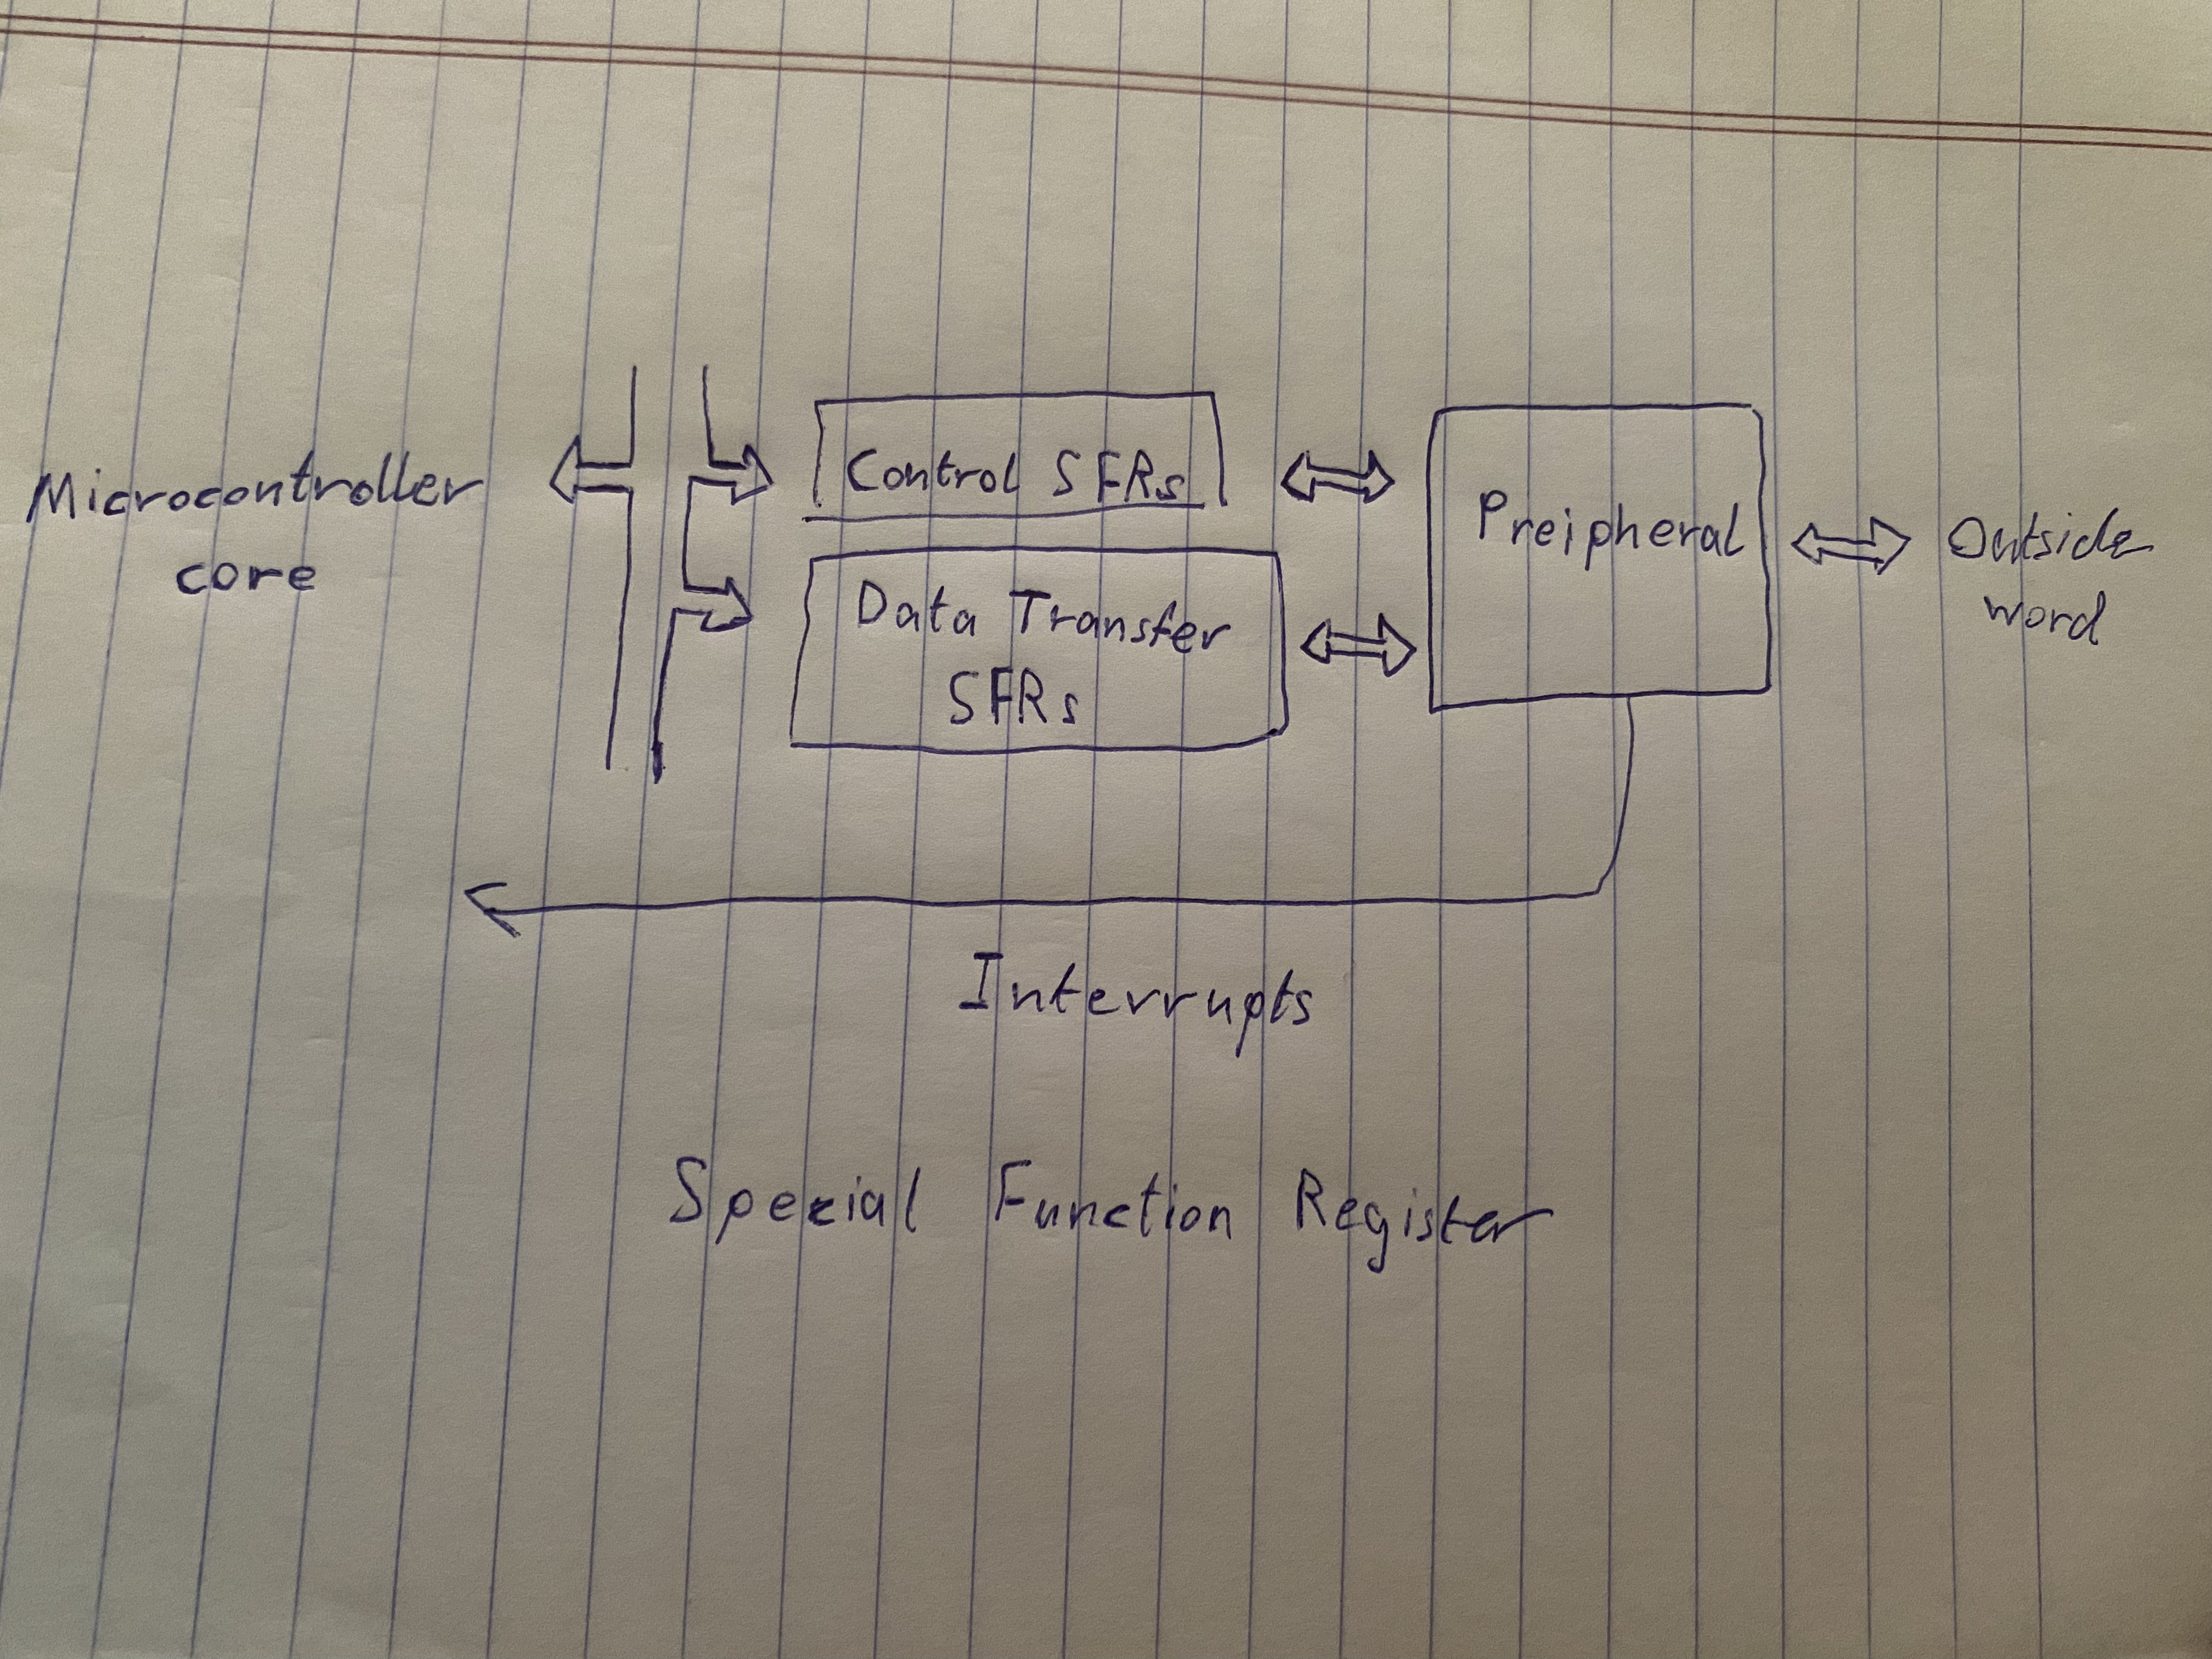 Microcontroller
core
Control SFRs
Data Transfer
SFRs
Preipheral
Outside
word
Interrupts
Special Function Register